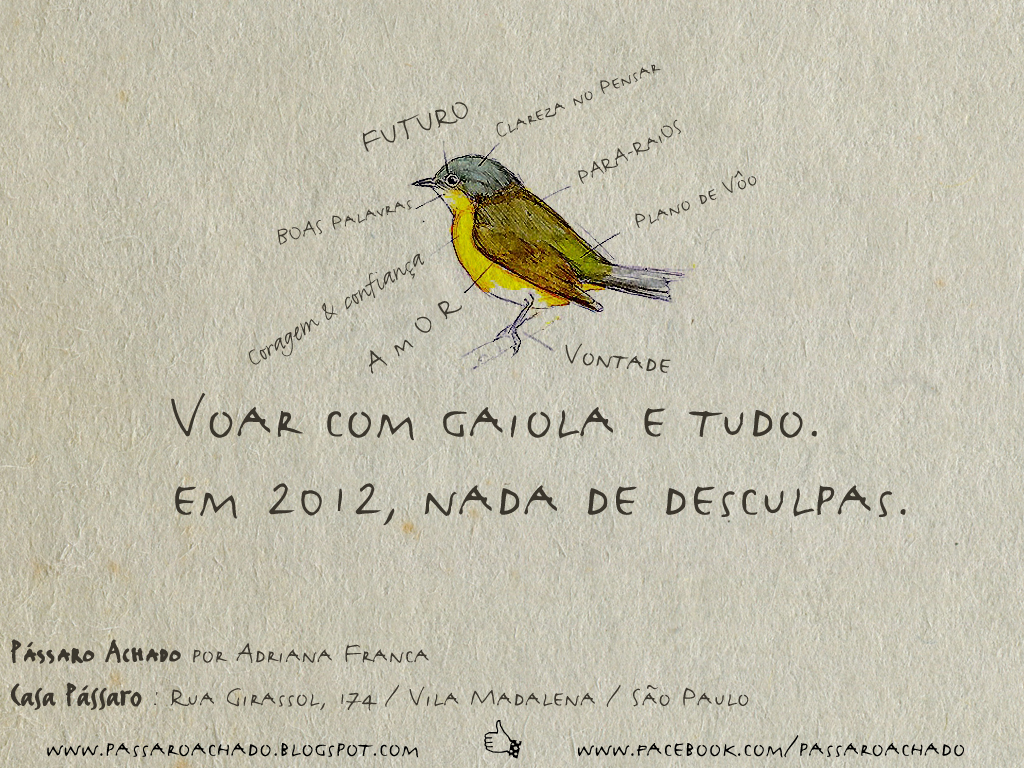 FUTURO
CLAREZA NO PENSAR
PARA-RAIOS
PLANO DE VÔO
BOAS PALAVRAS
Coragem & confiança
AMOR
VONTADE
VOAR COM GAIOLA E TUDO.
EM 2012, NADA DE DESCULPAS.
PÁSSARO ACHADO POR ADRIANA FRANCA
CASA PÁSSARO : RUA GIRASSOL, 174 / VILA MADALENA / SÃO PAULO
WWW.PASSAROACHADO.BLOGSPOT.COM
WWW.FACEBOOK.COM/PASSAROACHADO